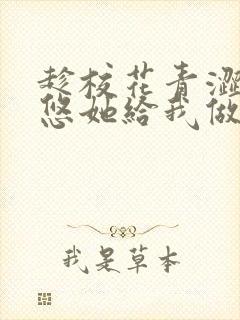 趁校花青涩
悠她给我做
我是草本